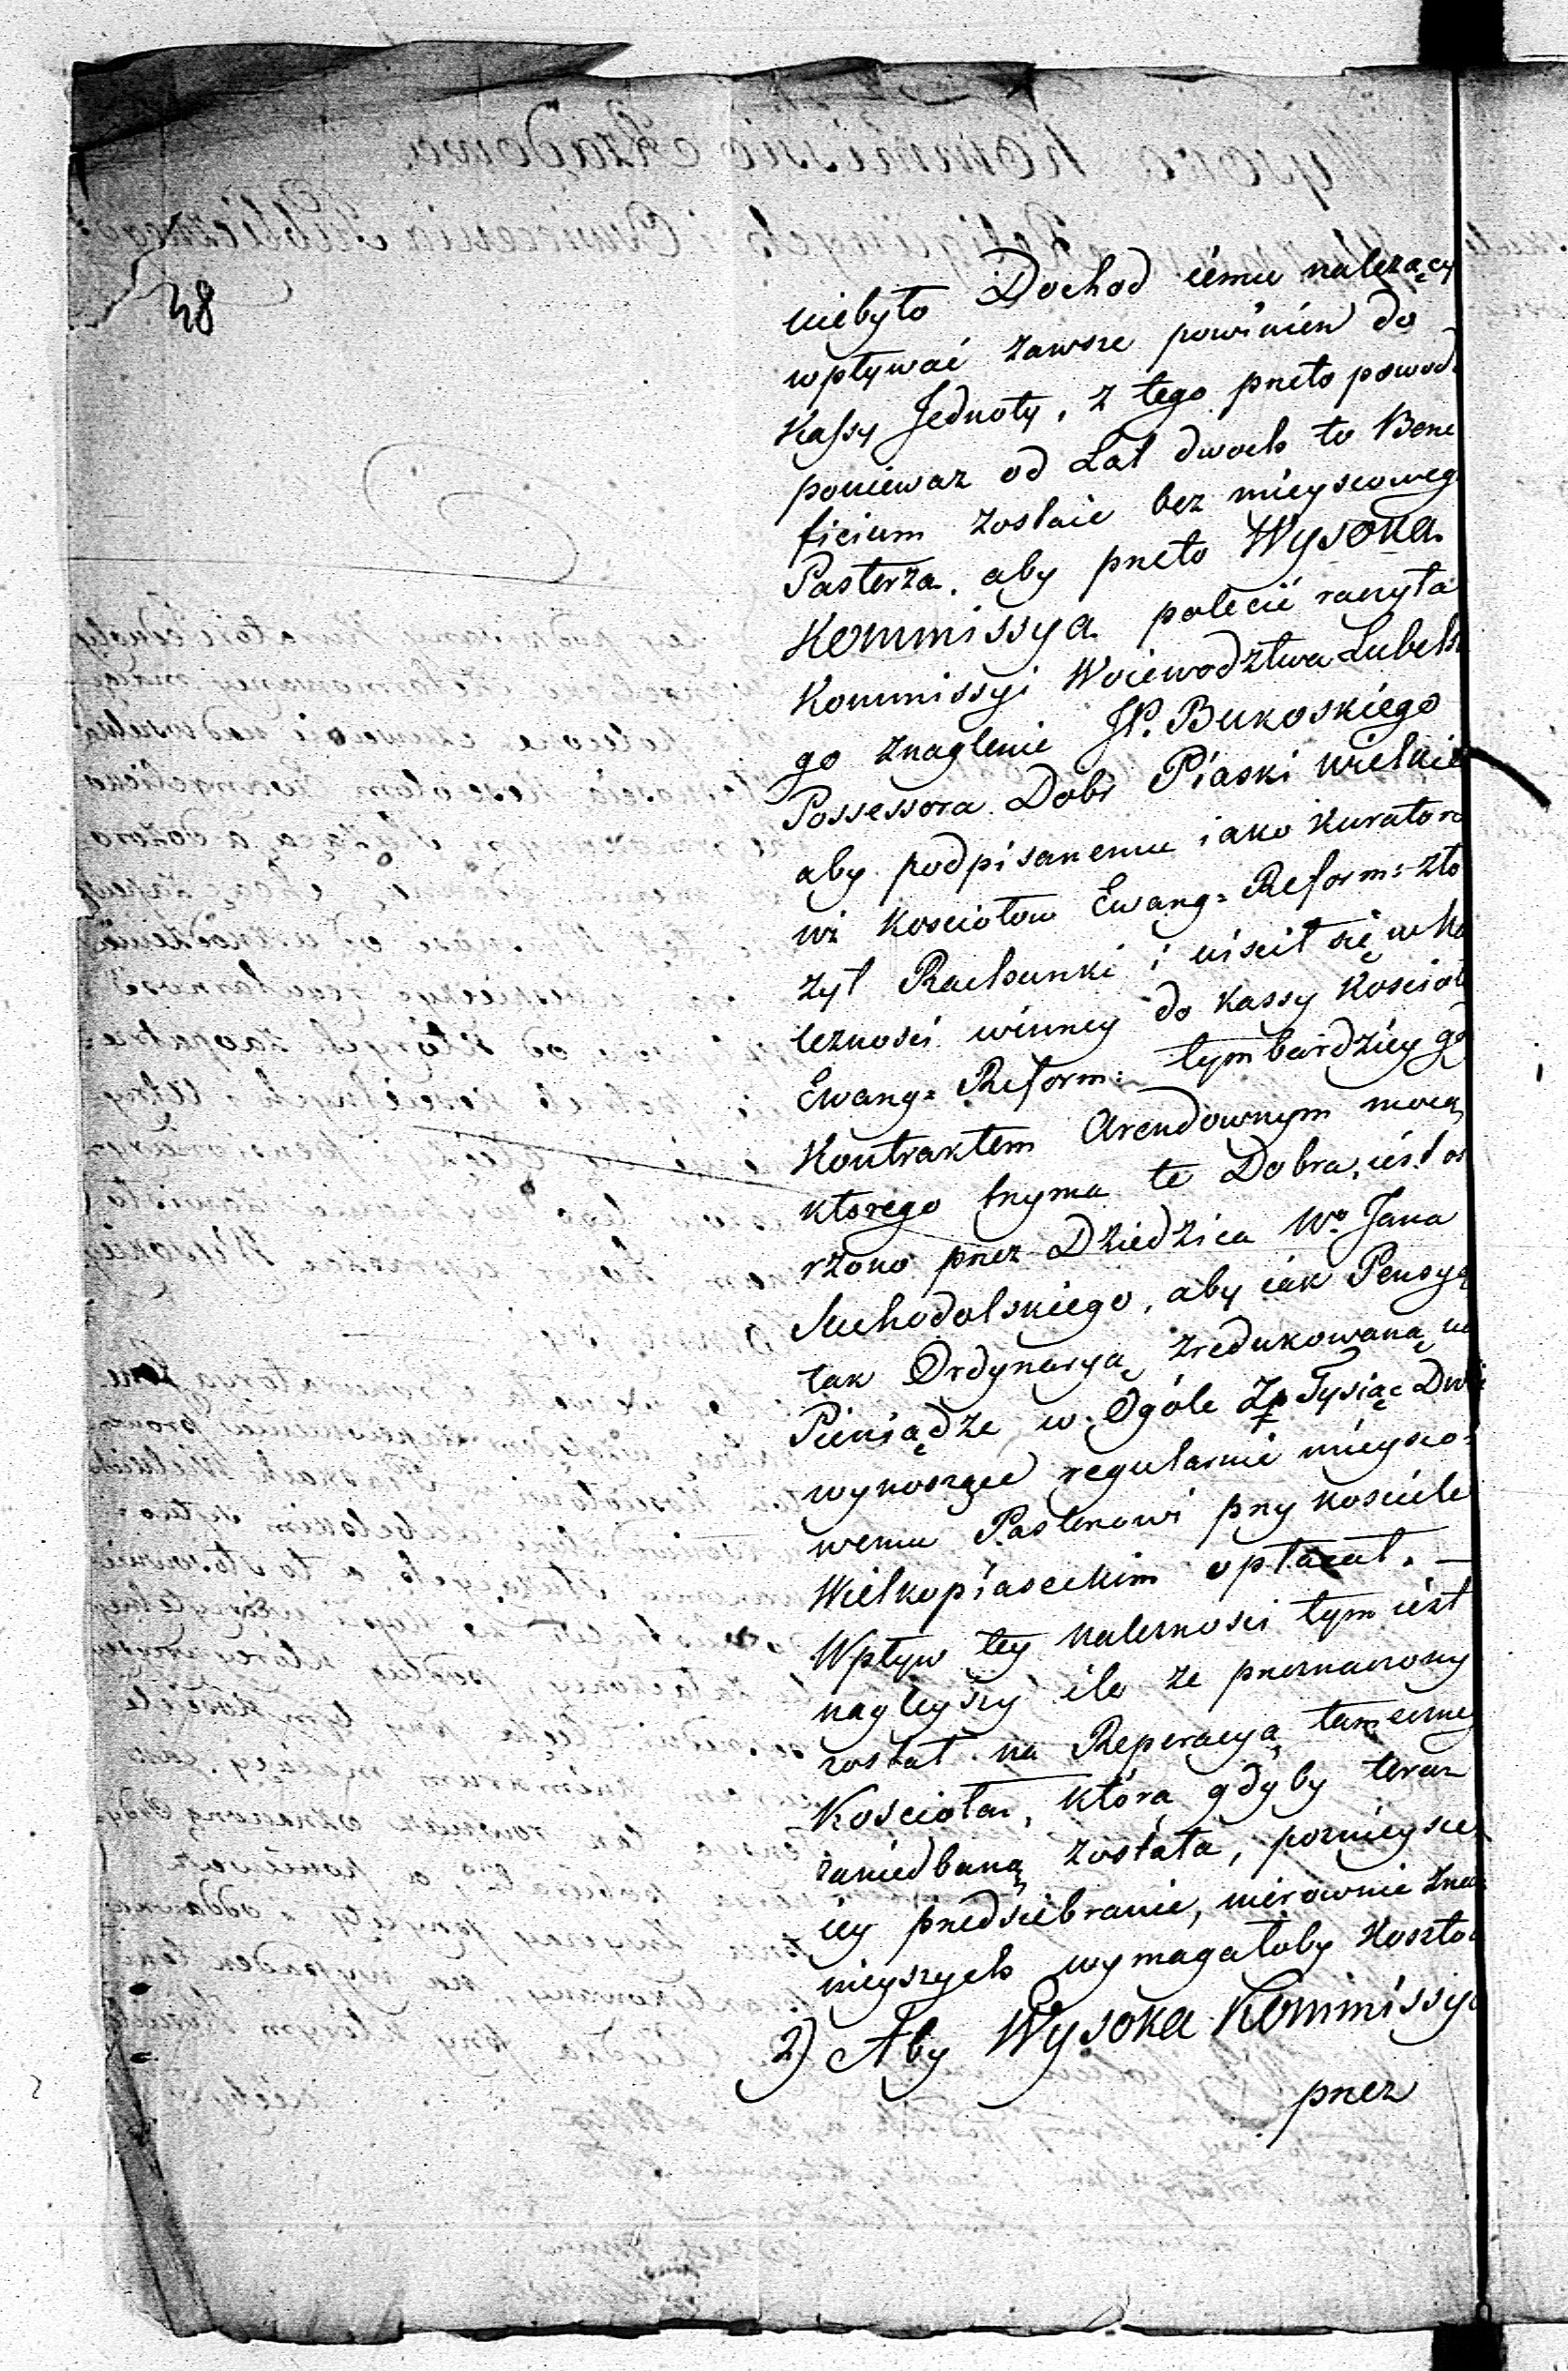 48
niebyło Dochod iému należący
wpływać zawsze powinien do
Kassy Jednoty, z tego przeto powod
ponieważ od Lat dwoch to Bene
ficium zostaie bez mieyscoweg
Pasterza. aby przeto Wysoka
Kommissya polecić raczyła
Kommissyi Woiewodztwa Lubels
go znaglenie JP. Bukoskiego
Possessora Dobr Piaski wielkie
aby podpisanemu iako Kuratoro
wi Kosciołow Ewang: Reform: zło
żył Rachunki i uiscił się w Na
leznosci winney do Kassy Koscioł
Ewang: Reform: tym bardziey gd
Kontraktem Arendownym mocą
ktorego trzyma te Dobra, iest os
rzono przez Dziedzica Wo Jana
Suchodolskiego, aby iak Pensyą
tak Ordynaryą zredukowaną na
Pieniądze w Ogóle Zp Tysiąc Dwie
wynoszące regularnie mieysco:
wemu Pasterzowi przy Kosciele
Wielkopiaseckim opłacał. —
Wpływ tey nalezności tym iest
nagleyszy ile ze przeznaczony
został na Reperacyą tameczneg
Kościoła, która gdyby teraz
zaniedbaną została, poznieysze
iey przedsiebranie, nierownie znac
nieyszych wymagałoby Koszto
2) Aby Wysoka Kommissya
przez